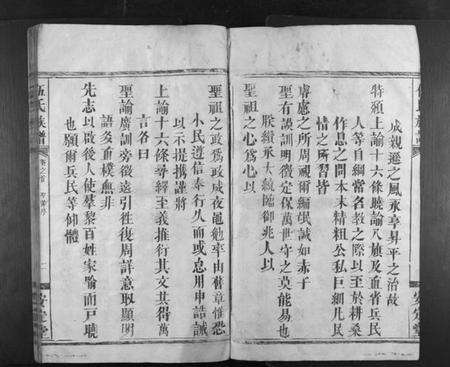 伍氏族譜
成親遜之風永享昇平之治故
特頒上諭十六條曉諭八旗及直省兵民
人等自綱常名教之際以至於耕桑
作息之間本末精粗公私巨細凡民
情之所習皆
睿慮之所周視爾編氓誠如赤子
聖有謨訓明徵定保萬世守之莫能易也
朕纘承大統臨御兆人以
聖祖之心爲心以
聖祖之政爲政夙夜黽勉率由舊章惟恐
小民遵信奉行久而或怠用申誥誡
以示提撕謹將
上諭十六條尋繹其義推衍其文共得萬
言名曰
聖諭廣訓旁徵遠引往復周詳意取顯明
語多直樸無非
先志以啟後人使羣黎百姓家喻而戶曉
也願爾兵民等仰體
伍氏族譜
卷之首
安定堂